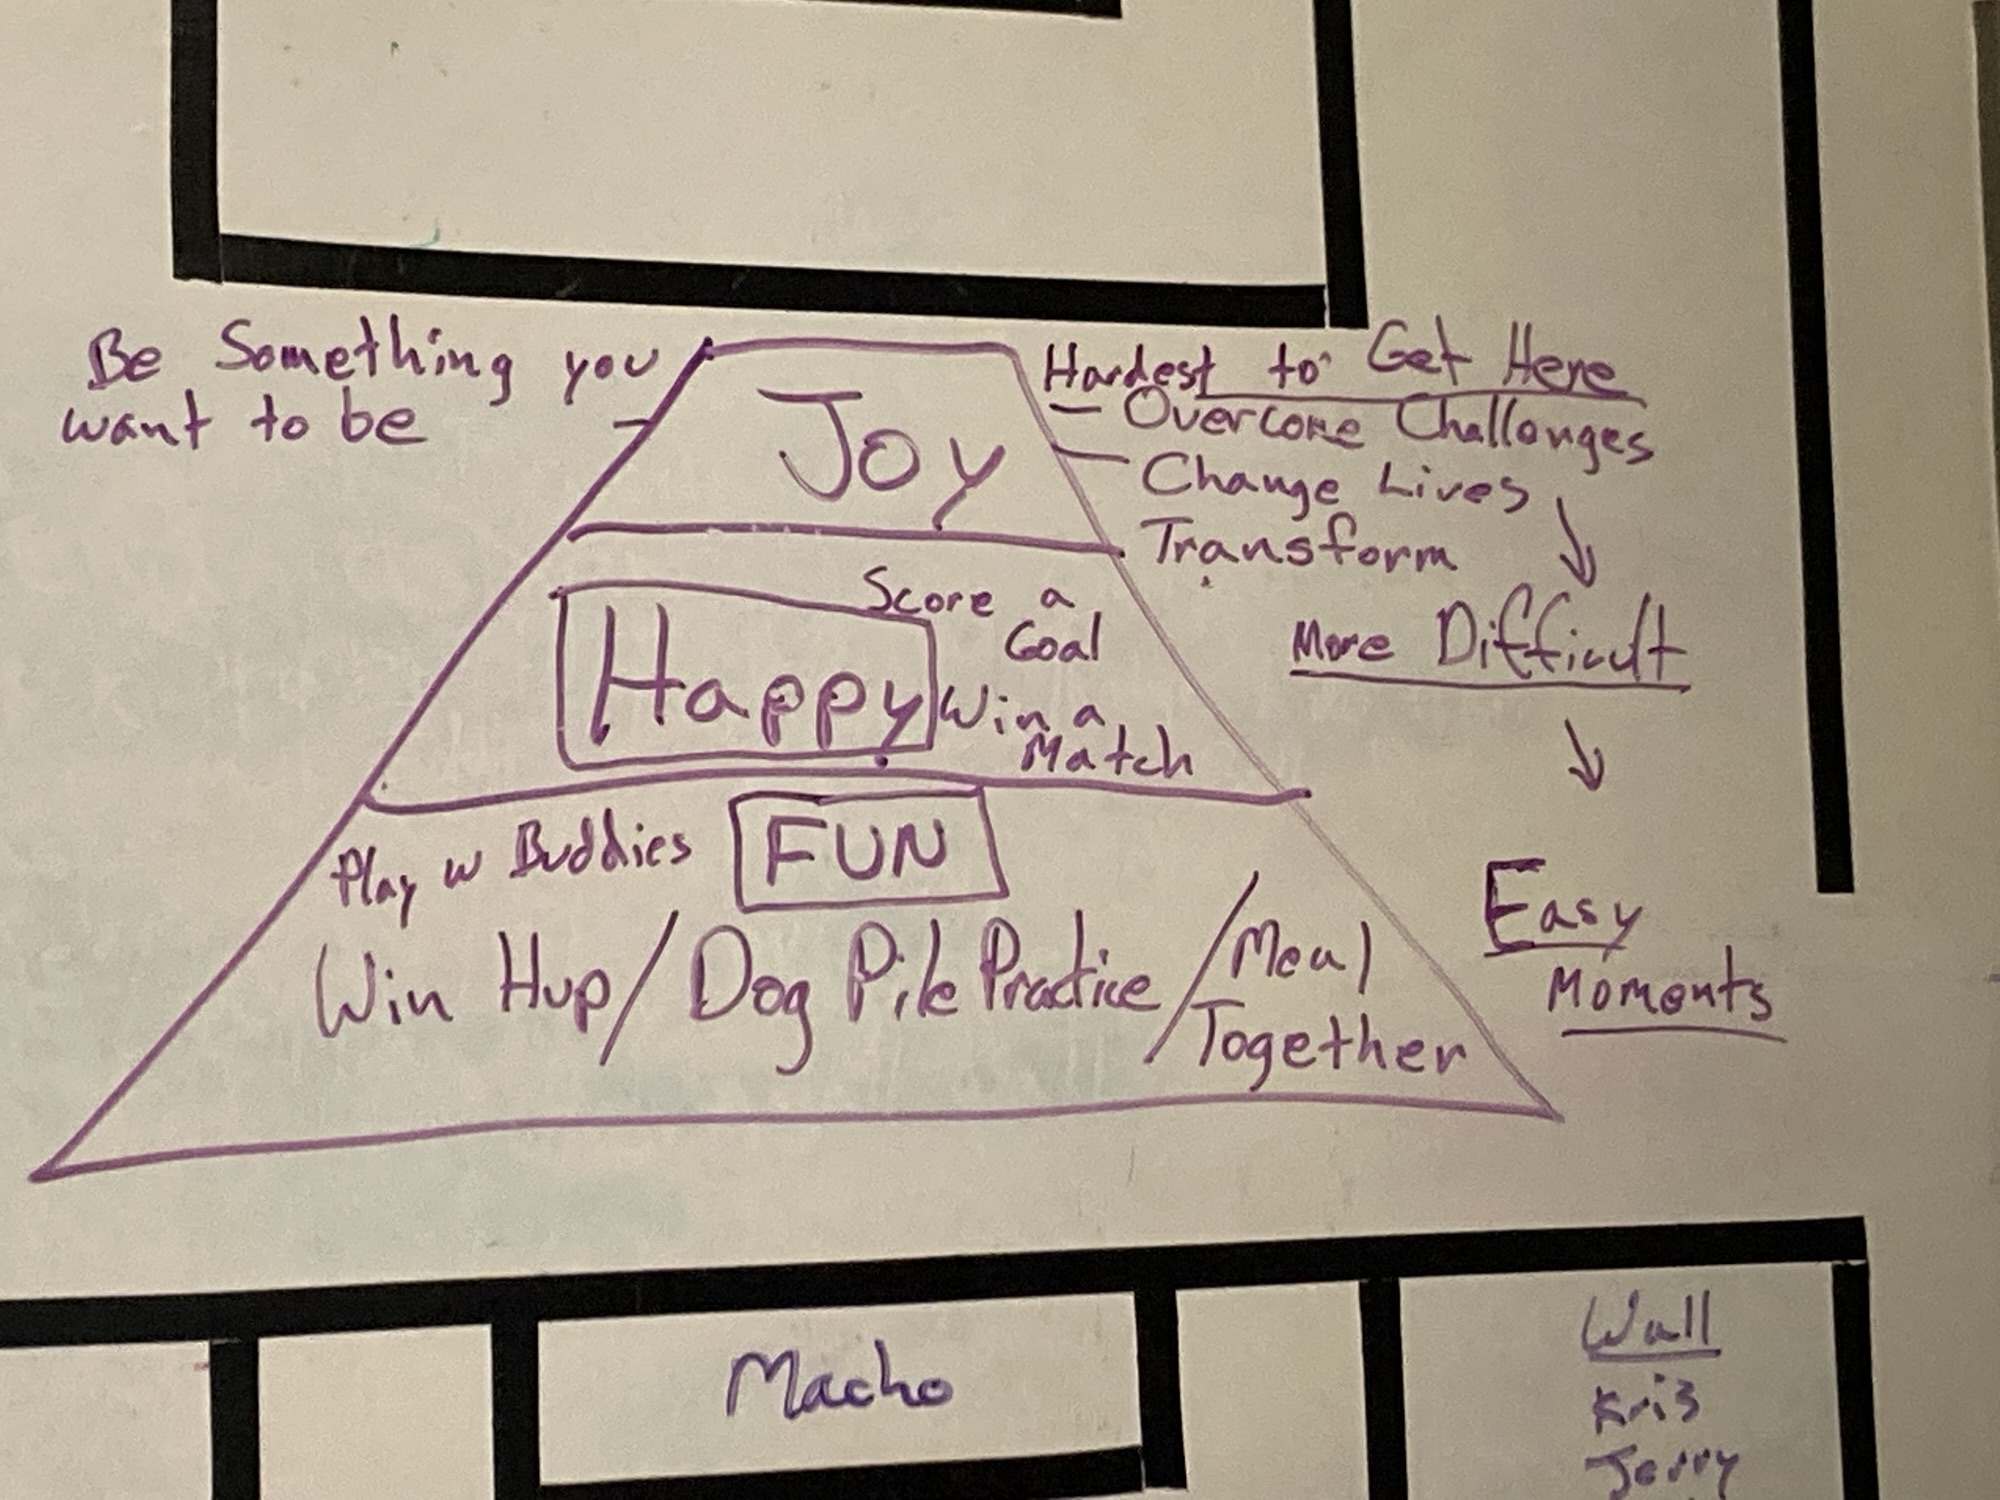 Be Something you
want to be
Hardest to Get Here
- Overcome Challenges
- Change Lives
Transform
Joy
Score a
Goal
Happy
Win a
Match
More Difficult
Play w Buddies
FUN
Win Hup / Dog Pile Practice / Meal
Together
Easy
Moments
Macho
Wall
Kris
Jerry